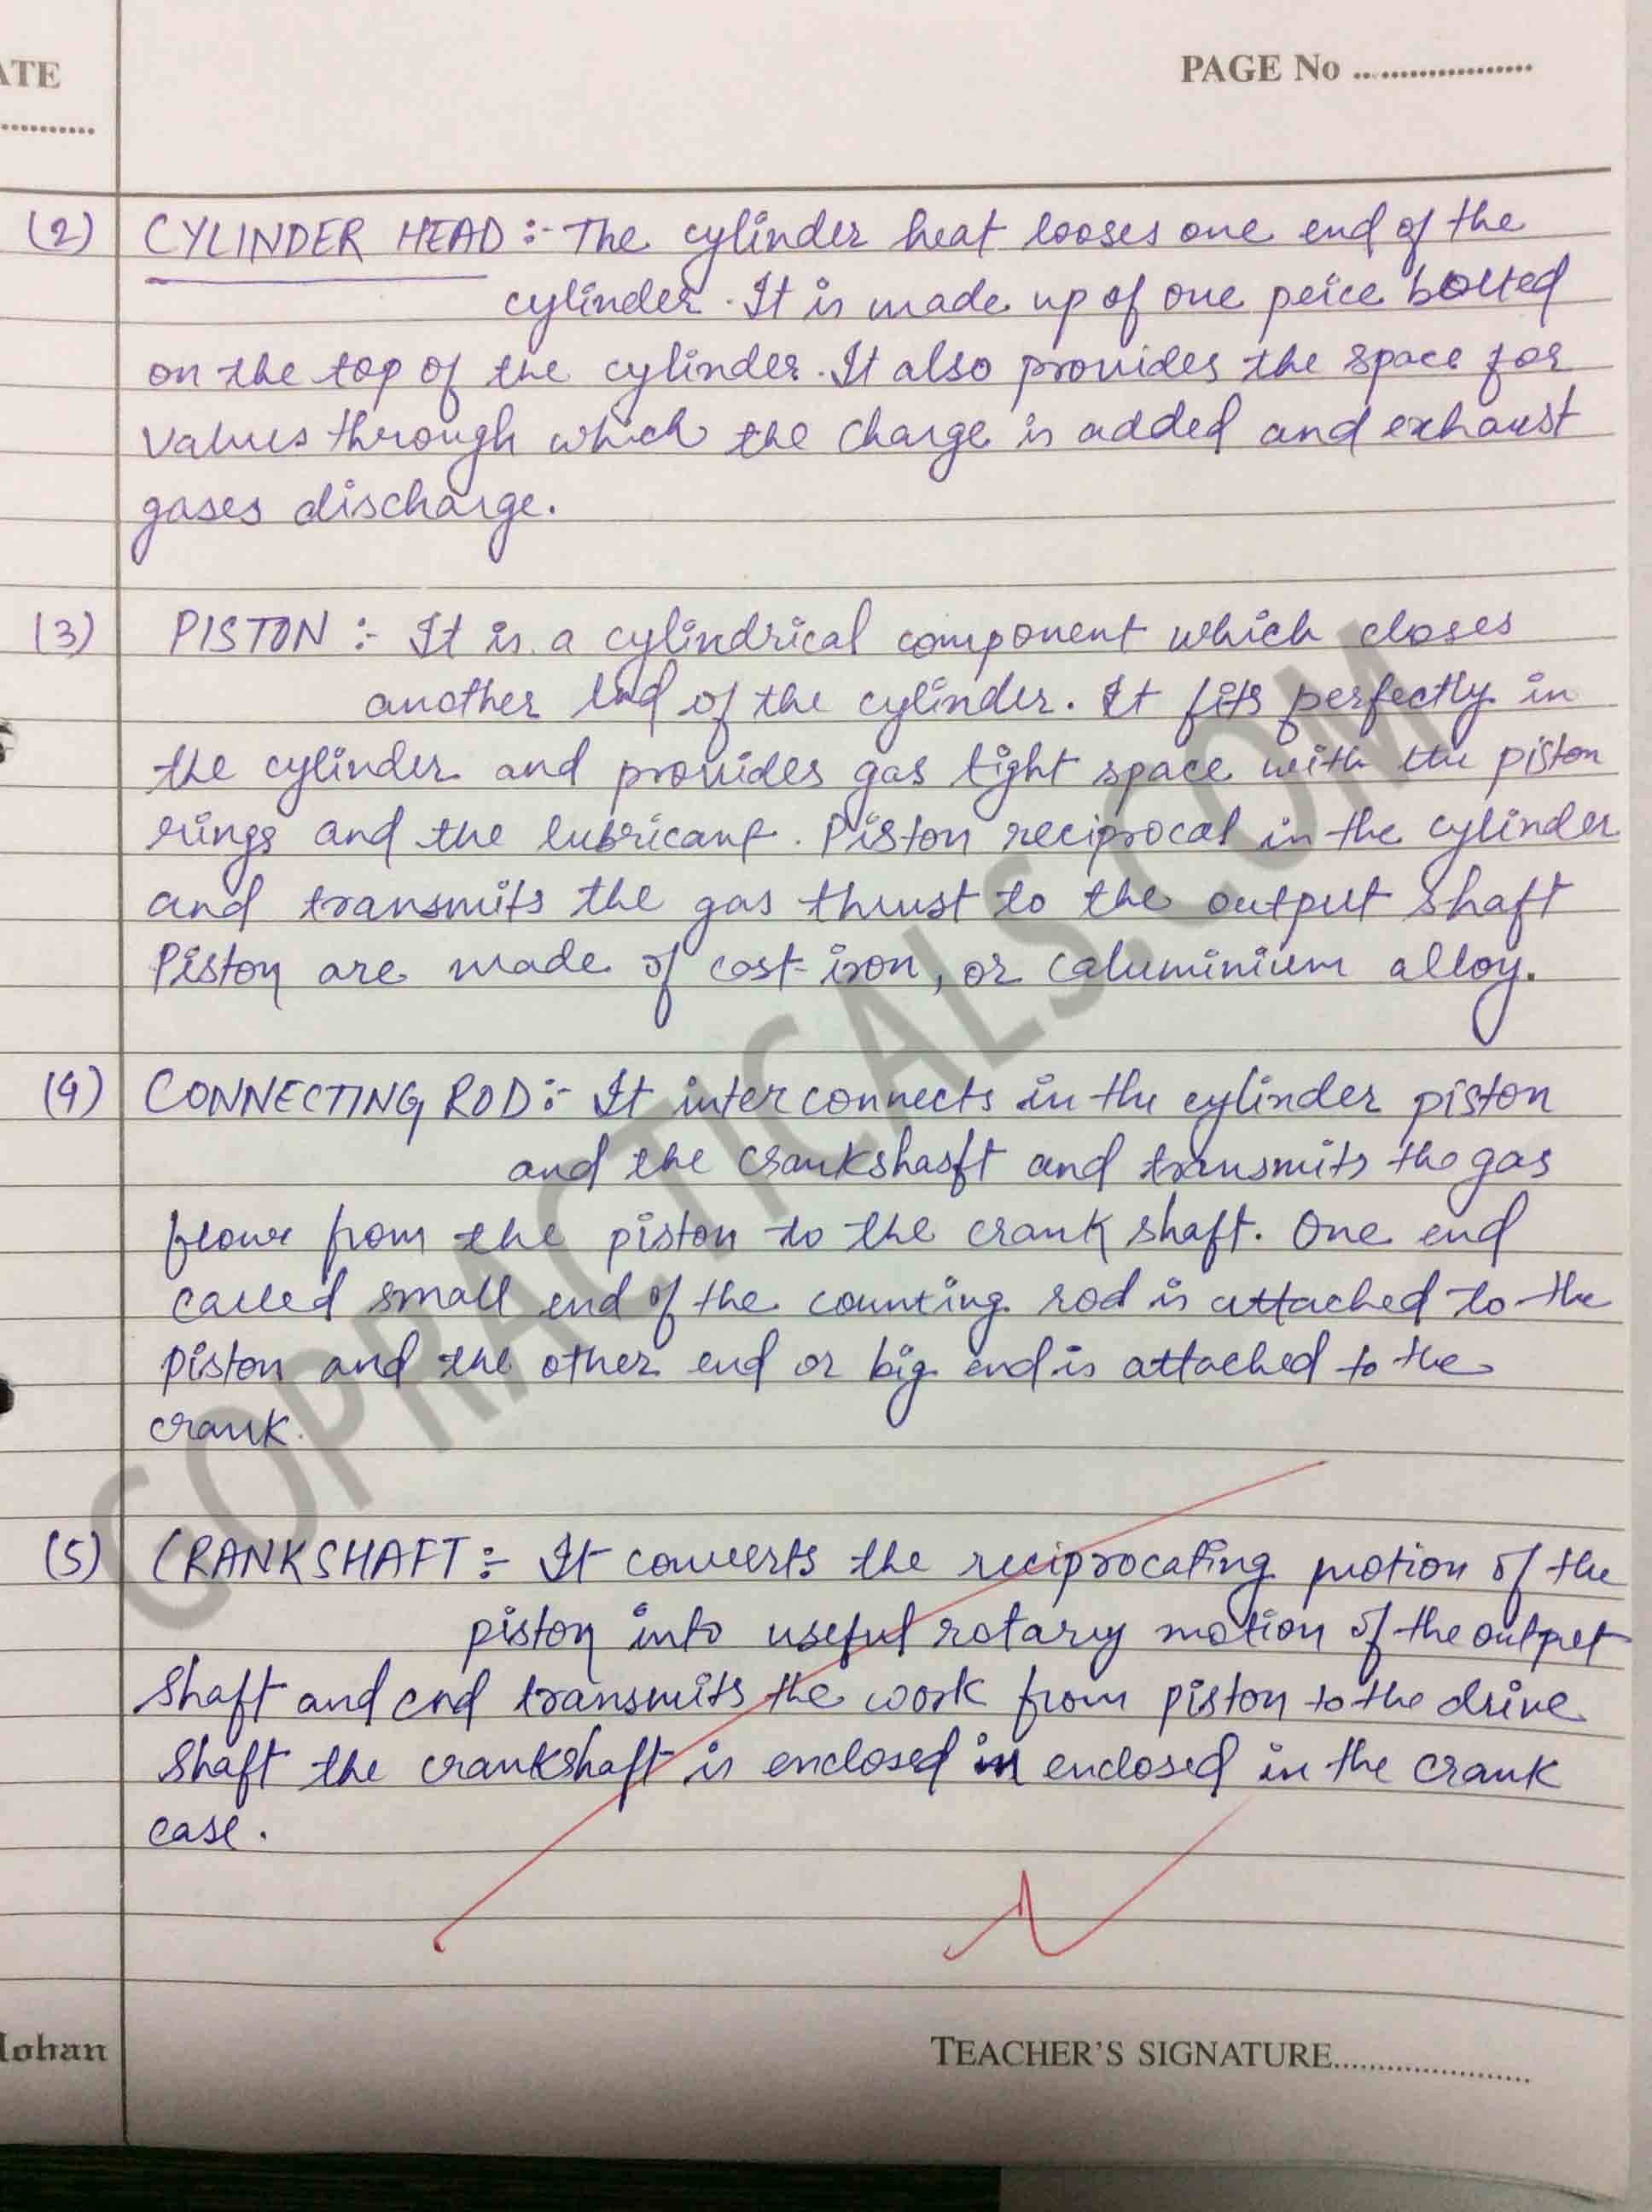 ATE
PAGE No ....................
..........
(2) CYLINDER HEAD :- The cylinder heat looses one end of the
cylinder. It is made up of one peice bolted
on the top of the cylinder. It also provides the space for
values through which the charge is added and exhaust
gases discharge.
(3) PISTON :- It is a cylindrical component which closes
another end of the cylinder. It fits perfectly in
the cylinder and provides gas tight space with the piston
rings and the lubricant. Piston reciprocal in the cylinder
and transmits the gas thrust to the output shaft
Piston are made of cast-iron, or caluminium alloy.
(4) CONNECTING ROD :- It interconnects in the cylinder piston
and the crankshasft and transmits the gas
from the piston to the crank shaft. One end
called small end of the counting rod is attached to the
piston and the other end or big end is attached to the
crank.
(5) CRANKSHAFT :- It converts the reciprocating motion of the
piston into useful rotary motion of the output
shaft and end transmits the work from piston to the drive
shaft the crankshaft is enclosed in enclosed in the crank
case.
GOPRACTICALS.COM
lohan
TEACHER'S SIGNATURE....................